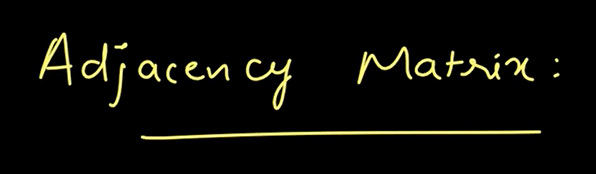 Adjacency Matrix: